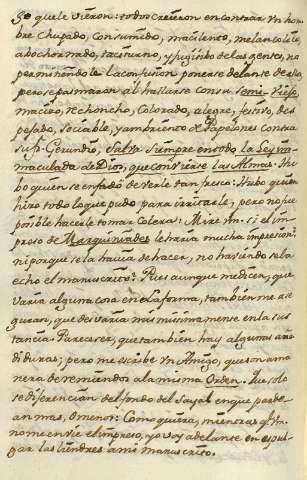 Sº que le vieron: todos creieron encontrar Vn hom
bre chupado, consumido, macilento, melancolico,
abochornado, taciturno, y fugitibo de las gentes, no
permitiendole la confusion ponerse delante de ellas,
pero se pasmaron al hallarse con un Semi-Viejo,
macizo, rechoncho, Colorado, alegre, festivo, des
pejado, Sociable, y ambriento de Papelones contra
su Fr. Gerundio, Salva siempre en todo la Ley in
maculada de Dios, que convierte las Almas. Hu
bo quien se enfadó de verle tan fresco: Hubo quien
hizo todo lo que pudo para irritarle; pero no fue
posible hacerle tomar Colera: Mire Vm. si el im
preso de Marquina le haria mucha impresion?
ni porque se la havia de hacer, no haviendosela
echo el manuscrito? Pues aunque me dicen, que
varia alguna cosa en la forma, tambien me ase
guran, que desvaria mui minimamente en la sus
tancia. Parece ser, que tambien hay algunas aña
diduras; pero me escribe Vn Amigo, que son ama
nera de remiendos a la misma Orden. Que solo
se diferencian del fondo del Sayal en que parde
an mas, o menos: Como quiera, mientras Vm.
no me envie el impreso, yo voy adelante en espul
gar las liendres a mi manuscrito.